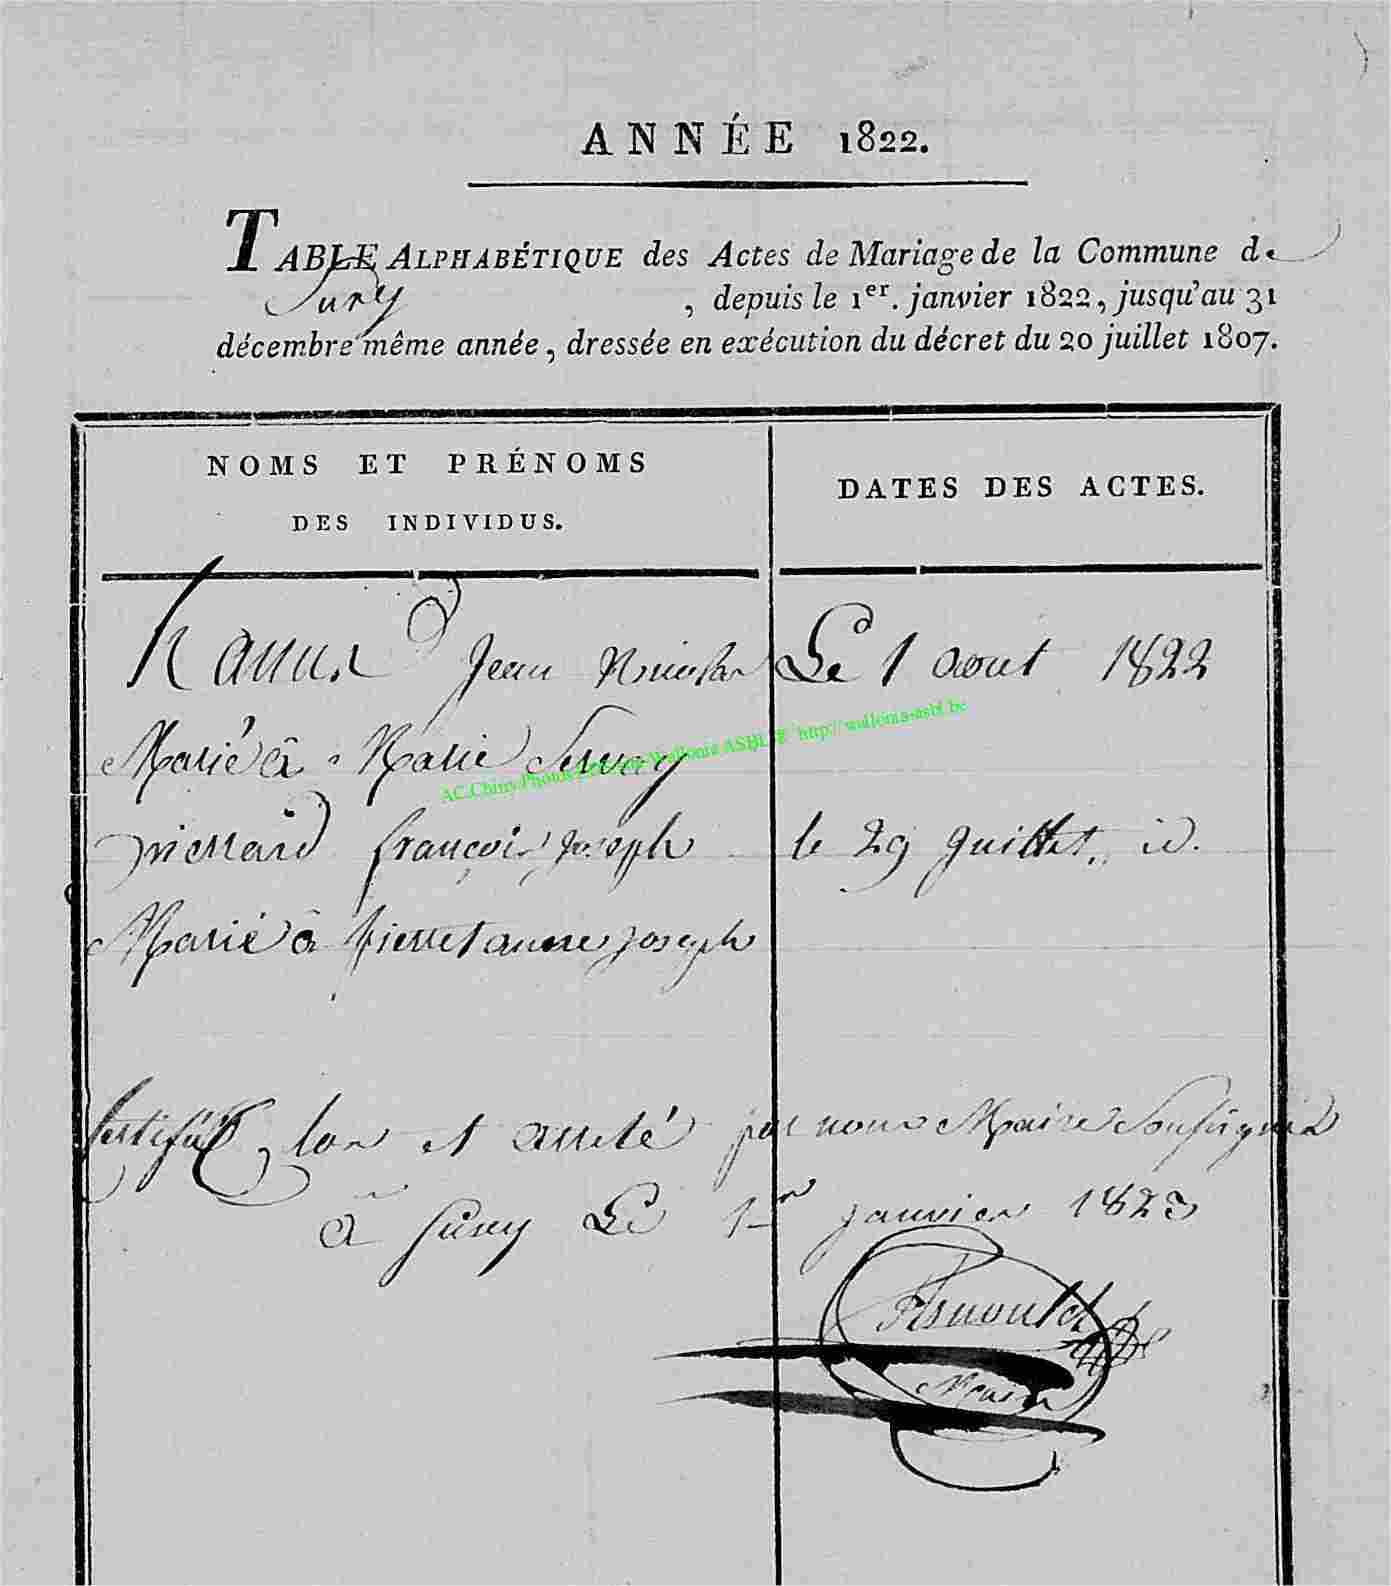 ANNÉE 1822.
TABLE ALPHABÉTIQUE des Actes de Mariage de la Commune de
Suxy , depuis le 1er. janvier 1822, jusqu'au 31
décembre même année, dressée en exécution du décret du 20 juillet 1807.
NOMS ET PRÉNOMS
DES INDIVIDUS.
DATES DES ACTES.
Jean Nicolas Le 1 aout 1822
Marié à Marie Servay
AC.Chiny.Photos Wallonia ASBL.be http://wallonia-asbl.be
pierrard françois joseph le 29 Juillet, id.
Marié à pierret anne joseph
Certifié clos et arreté par nous Maire Soussigné
à Suxy Le 1er janvier 1823
Arnould
Maire